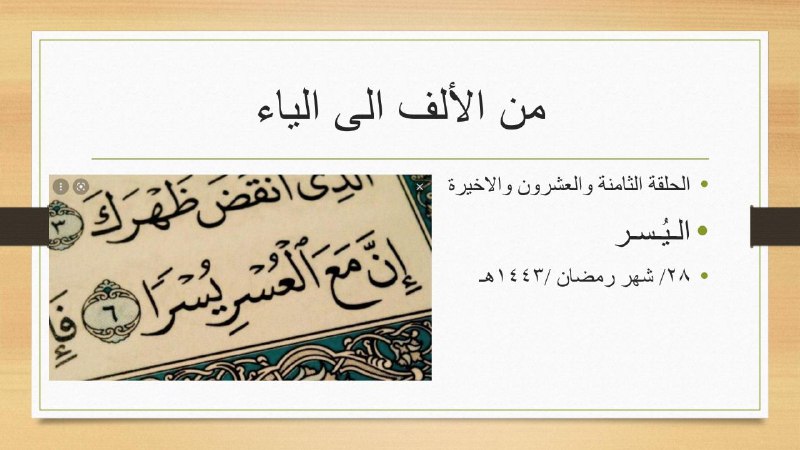 من الألف الى الياء
الحلقة الثامنة والعشرون والاخيرة
اليُسر
٢٨/ شهر رمضان /١٤٤٣هـ
الَّذِىٓ أَنقَضَ ظَهْرَكَ ٣
إِنَّ مَعَ ٱلْعُسْرِ يُسْرًا ٦ فَإِ